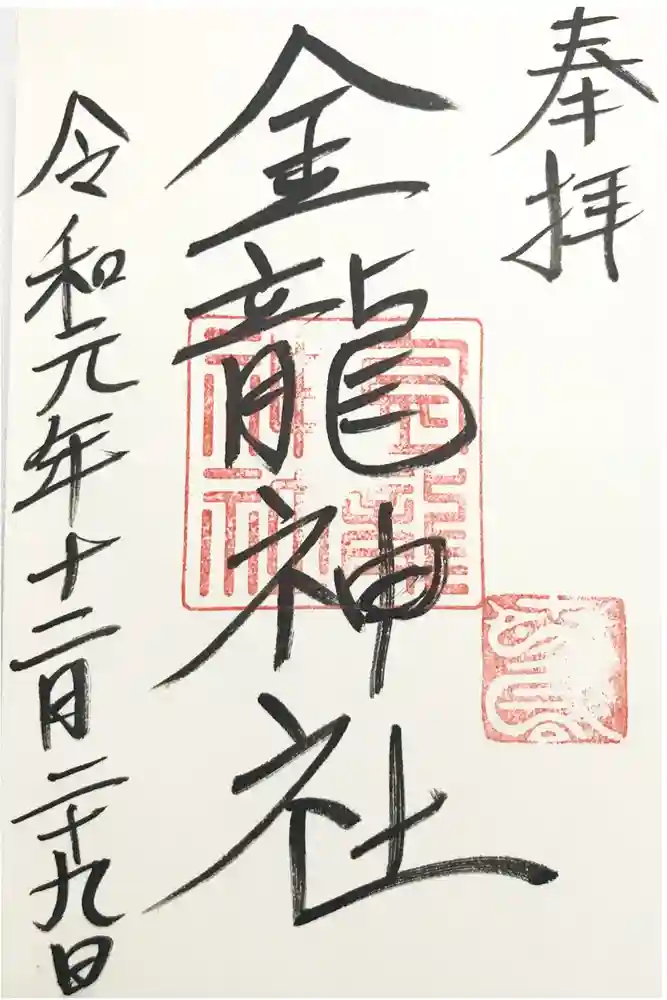 奉拝
金龍神社
令和元年十二月二十九日
金龍
神社